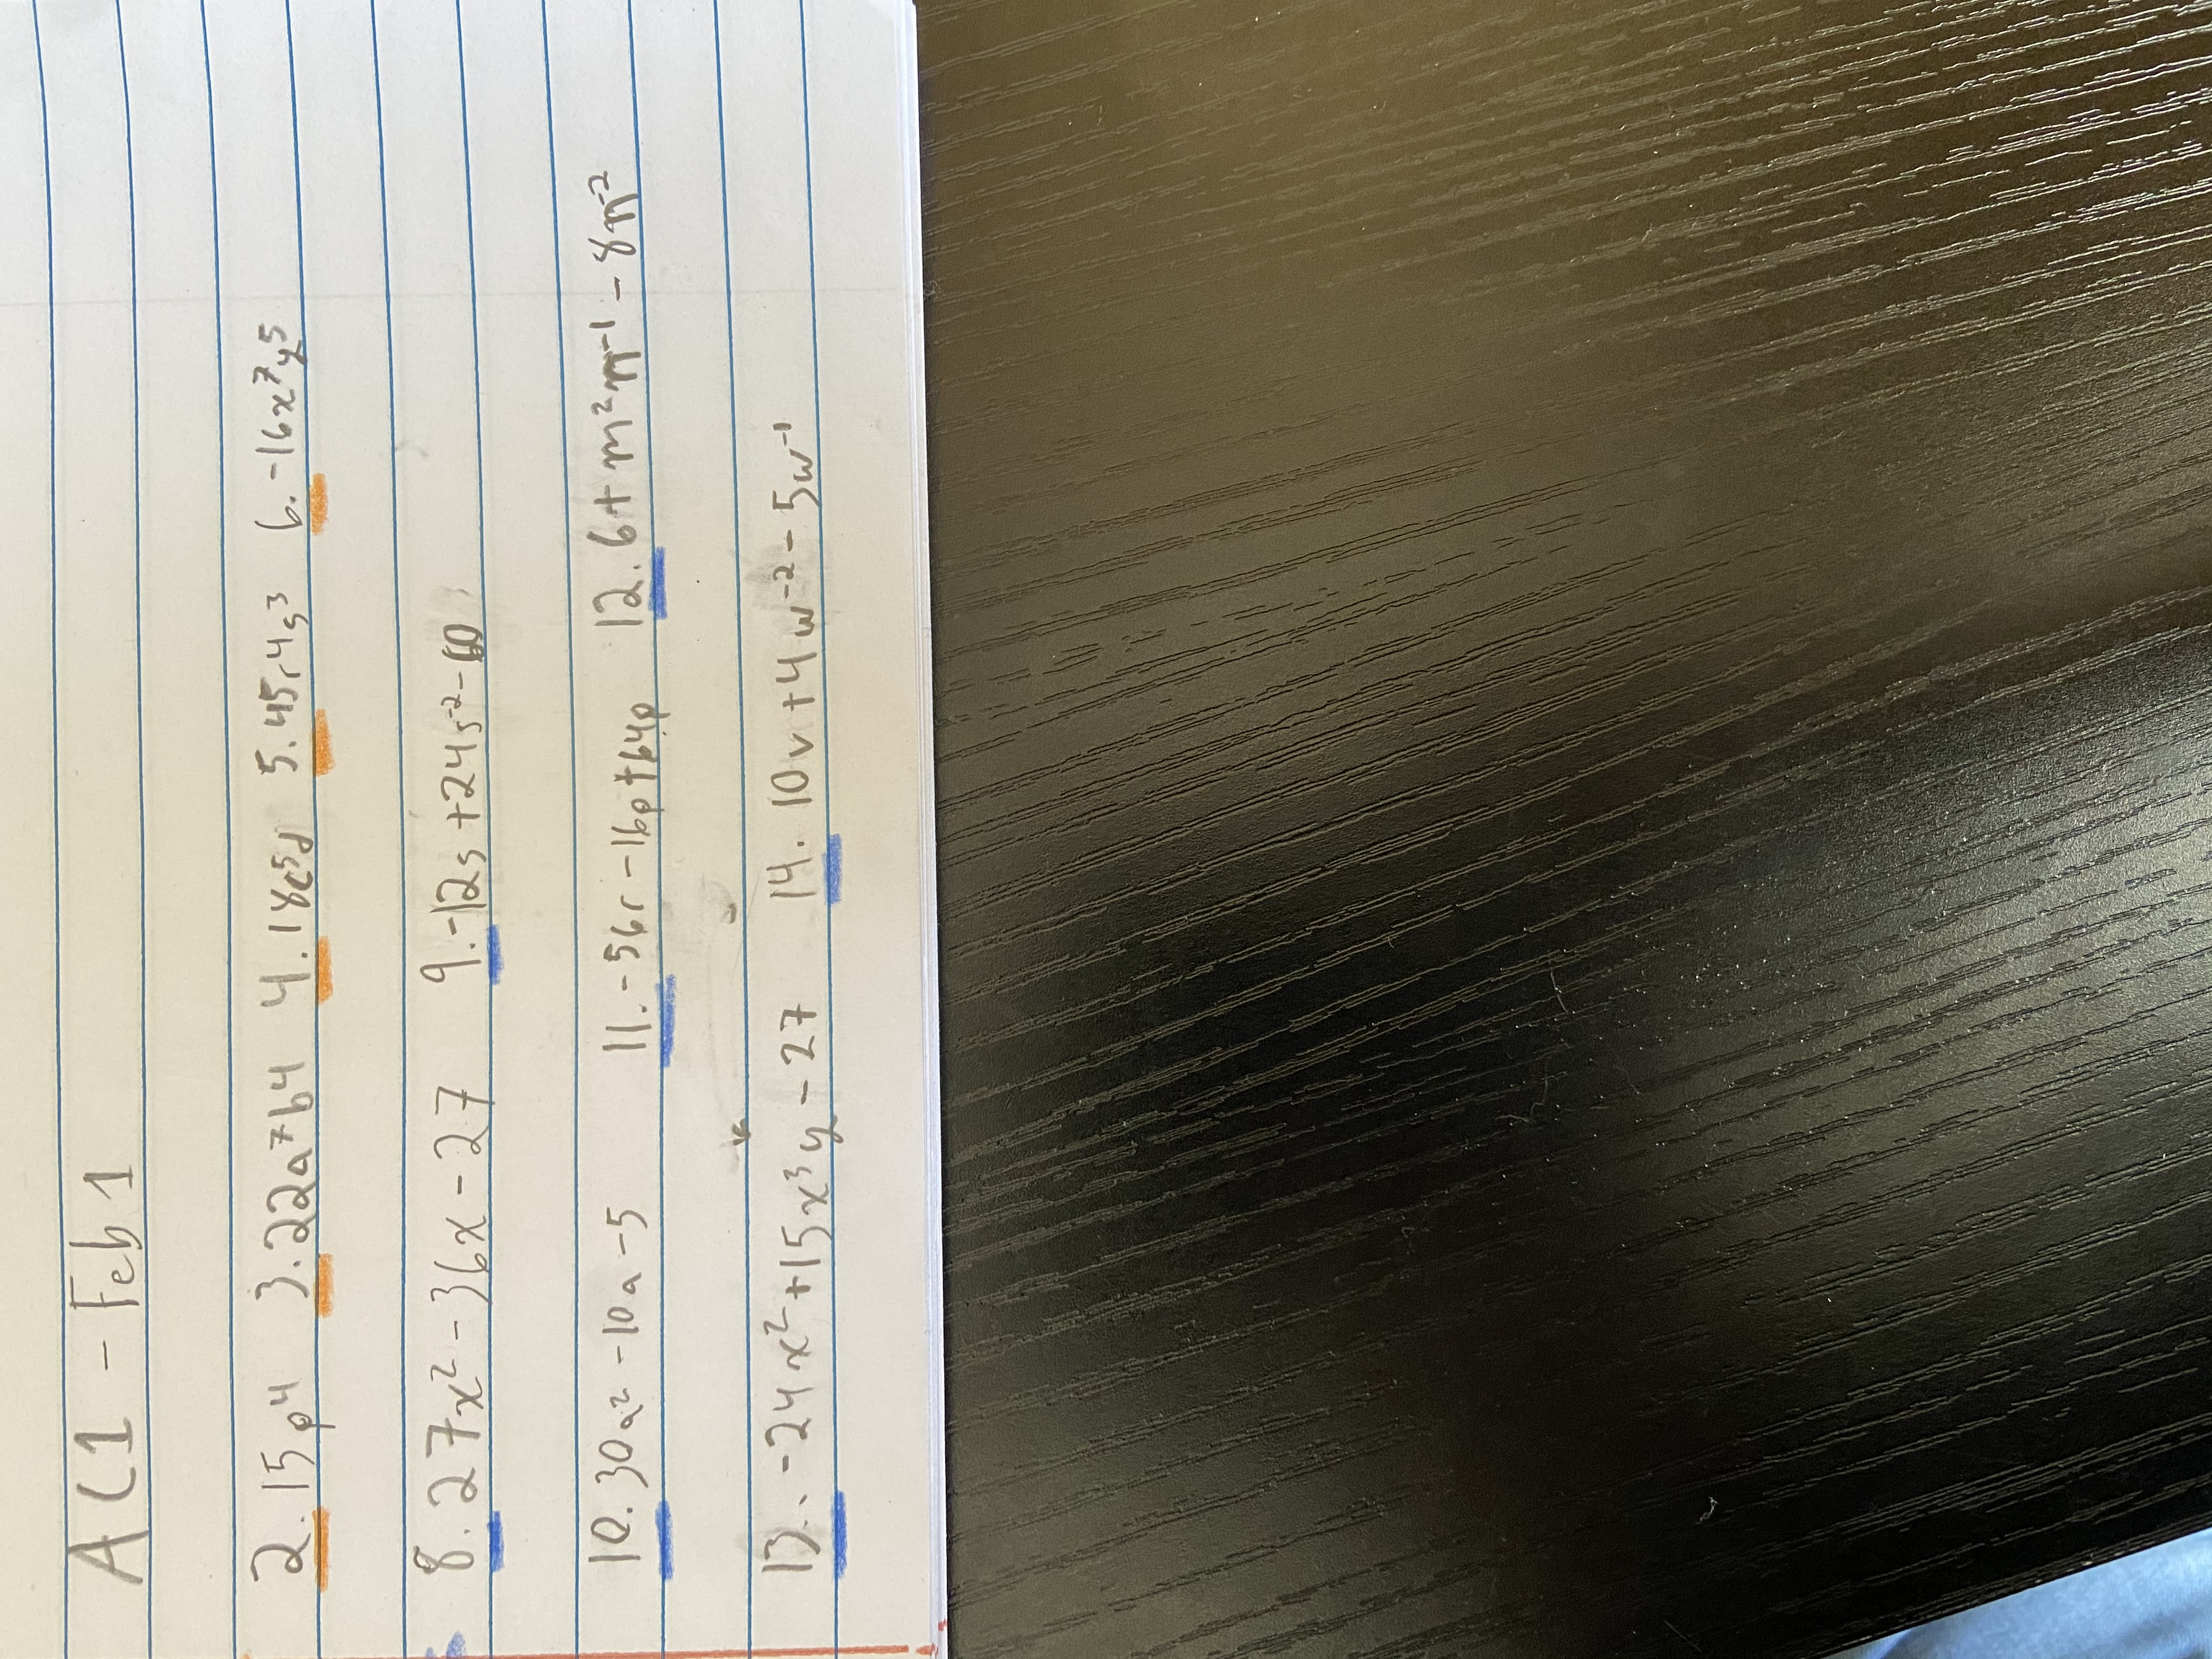 AC1 - Feb 1
2. 15p⁴ 3. 22a⁷b⁴ 4. 18c⁵d 5. 45r⁴s³ 6. -16x⁷y⁵
8. 27x² - 36x - 27 9. -12s + 24s⁻² - 60
10. 30a² - 10a - 5 11. -56r - 16p + 64p 12. 6 + m²n⁻¹ - 8n⁻²
13. -24x² + 15x³y - 27 14. 10v + 4w⁻² - 5w⁻¹